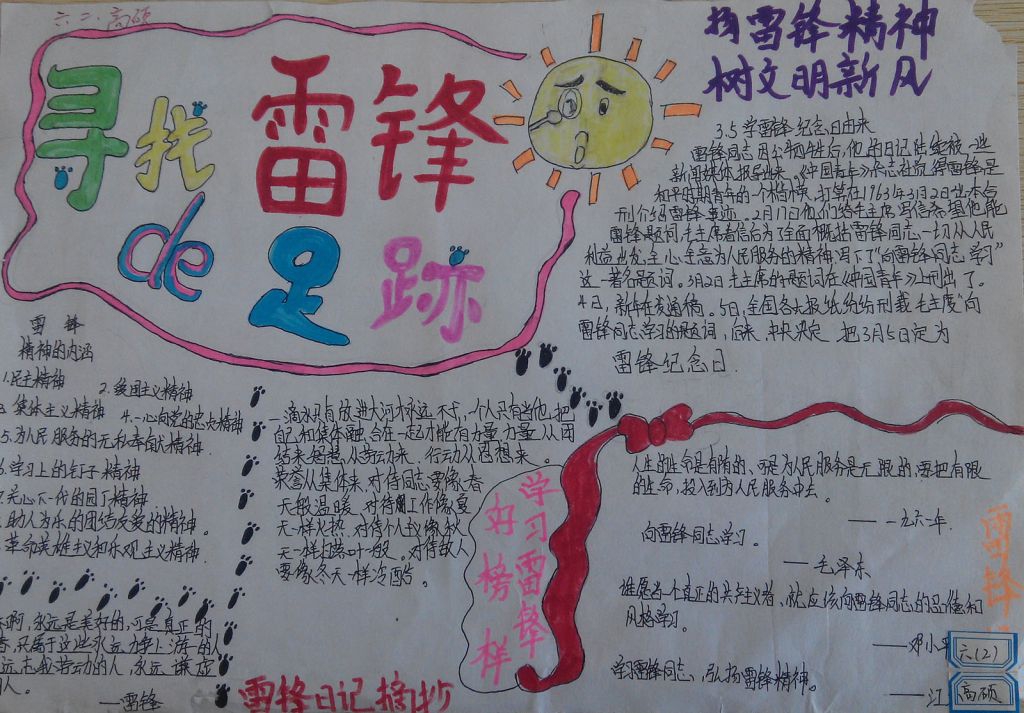 六二. 高硕
寻找雷锋
de足跡
扬雷锋精神
树文明新风
3.5学雷锋纪念日由来
雷锋同志因公牺牲后,他的日记陆续被一些
新闻媒体报导出来。《中国青年》杂志社觉得雷锋是
和平时期青年的一个好榜样,打算在1963年3月2日出本台
刊介绍雷锋事迹。2月17日他们给毛主席写信希望他能
雷锋题词毛主席看信后为了全面概括雷锋同志一切从人民
利益出发,全心全意为人民服务的精神,写下了"向雷锋同志学习"
这一著名题词。3月2日毛主席的题词在《中国青年》上刊出了。
4日,新华社发通稿。5日,全国各大报纸纷纷刊载毛主席"向
雷锋同志学习的题词,后来,中央决定把3月5日定为
雷锋纪念日.
雷锋
精神的内涵
1.民主精神
2.爱国主义精神
集体主义精神
4.一心向党的忠贞精神
5.为人民服务的无私奉献精神.
学习上的钉子精神
关心下一代的园丁精神
助人为乐的团结友爱的精神.
革命英雄主义和乐观主义精神.
一滴水只有放进大河才永远不干,一个人只有当他把
自己和集体融合在一起才能有力量,力量从团
结来,智慧从劳动来、行动从思想来。
荣誉从集体来,对待同志要像春
天般温暖、对待工作像夏
天一样火热、对待个人主义像秋
天一样扫落叶一般。对待敌人
要像冬天一样冷酷。
学习雷锋
好榜样
人生的生命是有限的、可是为人民服务是无限的,要把有限
的生命,投入到为人民服务中去。
——一九六一年.
向雷锋同志学习。
——毛泽东
谁愿当一个真正的共产主义者、就应该向雷锋同志的品德和
风格学习。
——邓小平
学习雷锋同志、弘扬雷锋精神。
——江
雷锋
啊,永远是美好的,可是真正的
只属于这些永远力争上游的人
远忘我劳动的人,永远谦虚
人。
——雷锋
雷锋日记摘抄
六(2)
高硕